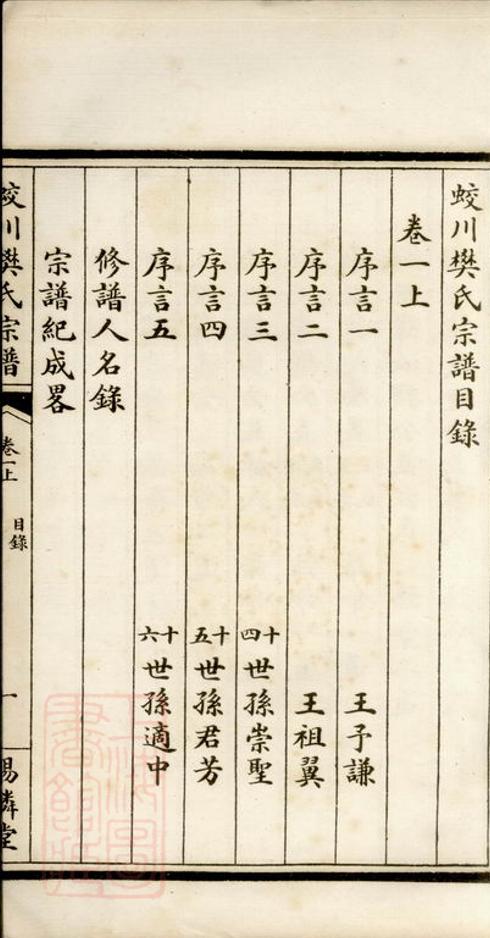 蛟川樊氏宗譜目錄
卷一上
序言一 王予謙
序言二 王祖翼
序言三 十四世孫崇聖
序言四 十五世孫君芳
序言五 十六世孫適中
修譜人名錄
宗譜紀成畧
蛟川樊氏宗譜 卷一上 目錄 一